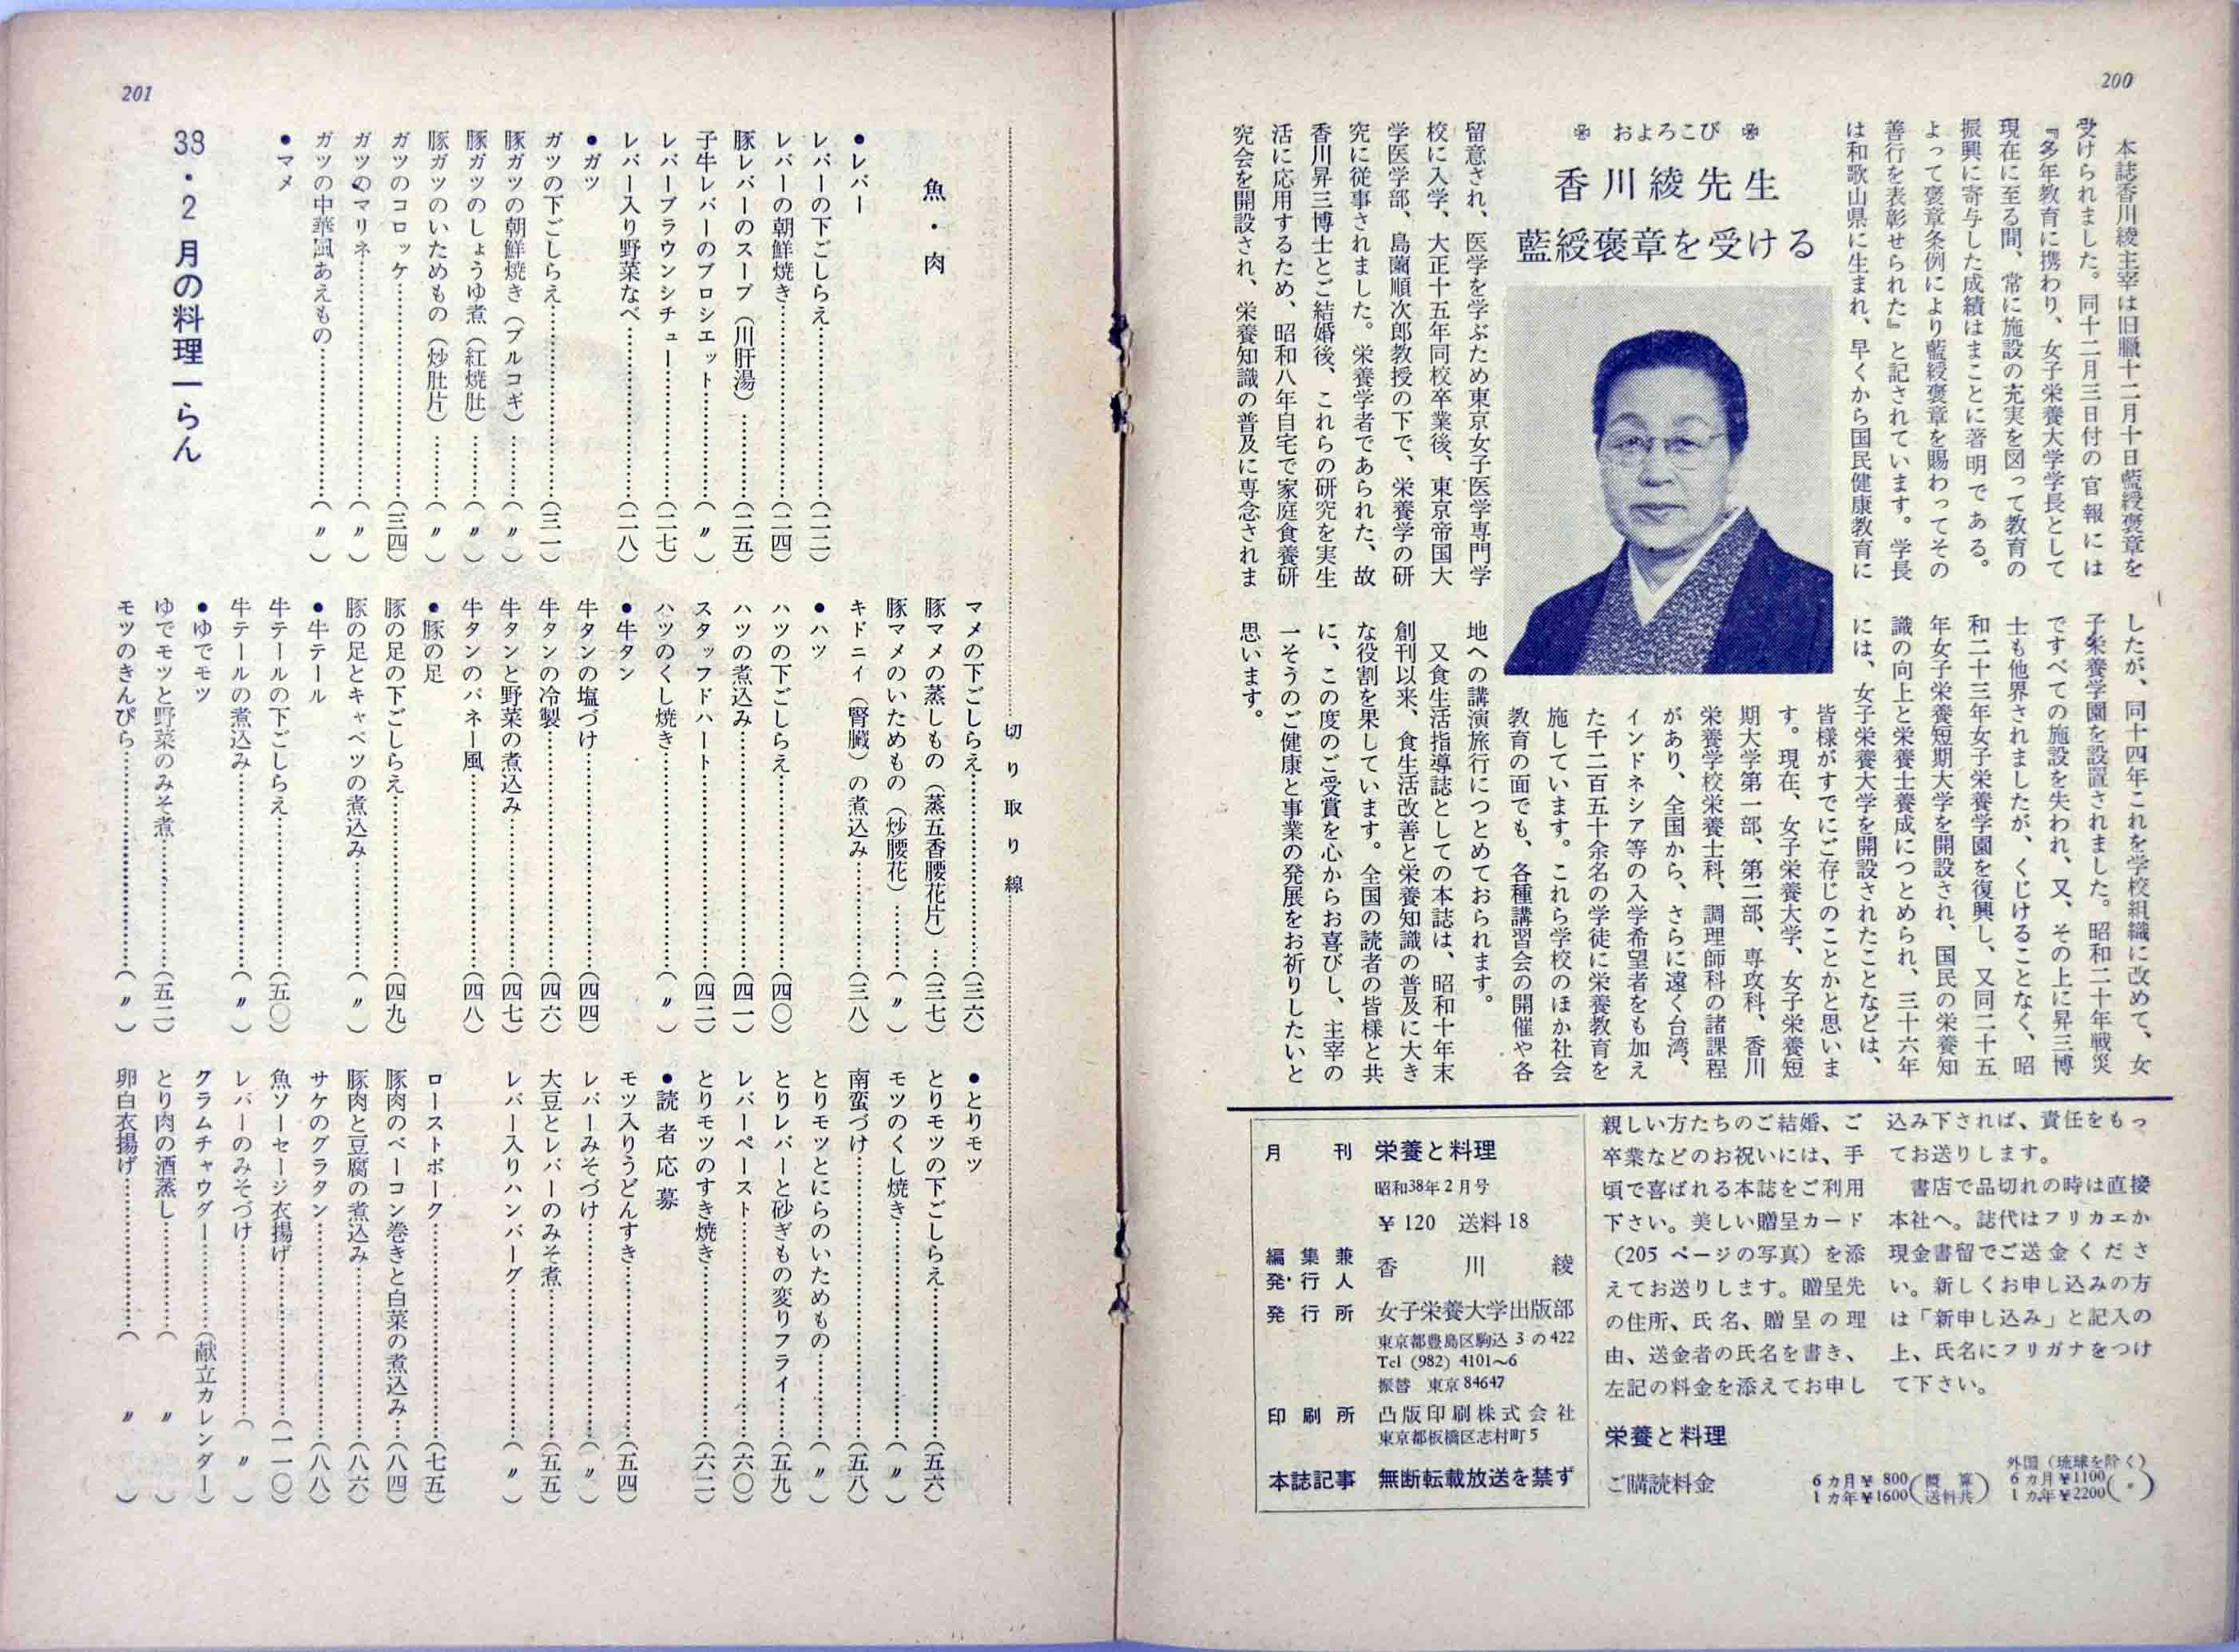 200
本誌香川綾主宰は旧臘十二月十日藍綬褒章を
受けられました。同十二月三日付の官報には
『多年教育に携わり、女子栄養大学学長として
現在に至る間、常に施設の充実を図って教育の
振興に寄与した成績はまことに著明である。
よって褒章条例により藍綬褒章を賜わってその
善行を表彰せられた』と記されています。学長
は和歌山県に生まれ、早くから国民健康教育に
およろこび
香川綾先生
藍綬褒章を受ける
留意され、医学を学ぶため東京女子医学専門学
校に入学、大正十五年同校卒業後、東京帝国大
学医学部、島薗順次郎教授の下で、栄養学の研
究に従事されました。栄養学者であられた、故
香川昇三博士とご結婚後、これらの研究を実生
活に応用するため、昭和八年自宅で家庭食養研
究会を開設され、栄養知識の普及に専念されま
したが、同十四年これを学校組織に改めて、女
子栄養学園を設置されました。昭和二十年戦災
ですべての施設を失われ、又、その上に昇三博
士も他界されましたが、くじけることなく、昭
和二十三年女子栄養学園を復興し、又同二十五
年女子栄養短期大学を開設され、国民の栄養知
識の向上と栄養士養成につとめられ、三十六年
には、女子栄養大学を開設されたことなどは、
皆様がすでにご存じのことかと思いま
す。現在、女子栄養大学、女子栄養短
期大学第一部、第二部、専攻科、香川
栄養学校栄養士科、調理師科の諸課程
があり、全国から、さらに遠く台湾、
インドネシア等の入学希望者をも加え
た千二百五十余名の学徒に栄養教育を
施しています。これら学校のほか社会
教育の面でも、各種講習会の開催や各
地への講演旅行につとめておられます。
又食生活指導誌としての本誌は、昭和十年末
創刊以来、食生活改善と栄養知識の普及に大き
な役割を果しています。全国の読者の皆様と共
に、この度のご受賞を心からお喜びし、主宰の
一そうのご健康と事業の発展をお祈りしたいと
思います。
親しい方たちのご結婚、ご
卒業などのお祝いには、手
頃で喜ばれる本誌をご利用
下さい。美しい贈呈カード
（205 ページの写真）を添
えてお送りします。贈呈先
の住所、氏名、贈呈の理
由、送金者の氏名を書き、
左記の料金を添えてお申し
込み下されば、責任をもっ
てお送りします。
書店で品切れの時は直接
本社へ。誌代はフリカエか
現金書留でご送金くださ
い。新しくお申し込みの方
は「新申し込み」と記入の
上、氏名にフリガナをつけ
て下さい。
栄養と料理
ご購読料金
6カ月￥ 800（概算
1カ年￥1600（送料共）
外国（琉球を除く）
6カ月￥1100
1カ年￥2200（〃）
月刊 栄養と料理
昭和38年2月号
￥120 送料18
編集兼
発行人 香川綾
発行所 女子栄養大学出版部
東京都豊島区駒込 3 の422
Tel (982) 4101〜6
振替 東京84647
印刷所 凸版印刷株式会社
東京都板橋区志村町5
本誌記事 無断転載放送を禁ず
201
切り取り線
魚・肉
●レバー
レバーの下ごしらえ……（二二）
レバーの朝鮮焼き……（二四）
豚レバーのスープ（川肝湯）……（二五）
子牛レバーのブロシエット……（〃）
レバーブラウンシチュー……（二七）
レバー入り野菜なべ……（二八）
●ガツ
ガツの下ごしらえ……（三一）
豚ガツの朝鮮焼き（プルコギ）……（〃）
豚ガツのしょうゆ煮（紅焼肚）……（〃）
豚ガツのいためもの（炒肚片）……（〃）
ガツのコロッケ……（三四）
ガツのマリネ……（〃）
ガツの中華風あえもの……（〃）
●マメ
38・2月の料理一らん
マメの下ごしらえ……（三六）
豚マメの蒸しもの（蒸五香腰花片）…（三七）
豚マメのいためもの（炒腰花）……（〃）
キドニイ（腎臓）の煮込み……（三八）
●ハツ
ハツの下ごしらえ……（四〇）
ハツの煮込み……（四一）
スタッフドハート……（四二）
ハツのくし焼き……（〃）
●牛タン
牛タンの塩づけ……（四四）
牛タンの冷製……（四六）
牛タンと野菜の煮込み……（四七）
牛タンのパネー風……（四八）
●豚の足
豚の足の下ごしらえ……（四九）
豚の足とキャベツの煮込み……（〃）
●牛テール
牛テールの下ごしらえ……（五〇）
牛テールの煮込み……（〃）
●ゆでモツ
ゆでモツと野菜のみそ煮……（五二）
モツのきんぴら……（〃）
●とりモツ
とりモツの下ごしらえ……（五六）
モツのくし焼き……（〃）
南蛮づけ……（五八）
とりモツとにらのいためもの……（〃）
とりレバーと砂ぎもの変りフライ……（五九）
レバーペースト……（六〇）
とりモツのすき焼き……（六二）
●読者応募
モツ入りうどんすき……（五四）
レバーみそづけ……（〃）
大豆とレバーのみそ煮……（五五）
レバー入りハンバーグ……（〃）
ローストポーク……（七五）
豚肉のベーコン巻きと白菜の煮込み…（八四）
豚肉と豆腐の煮込み……（八六）
サケのグラタン……（八八）
魚ソーセージ衣揚げ……（一一〇）
レバーのみそづけ……（〃）
クラムチャウダー……（献立カレンダー）
とり肉の酒蒸し……（〃）
卵白衣揚げ……（〃）